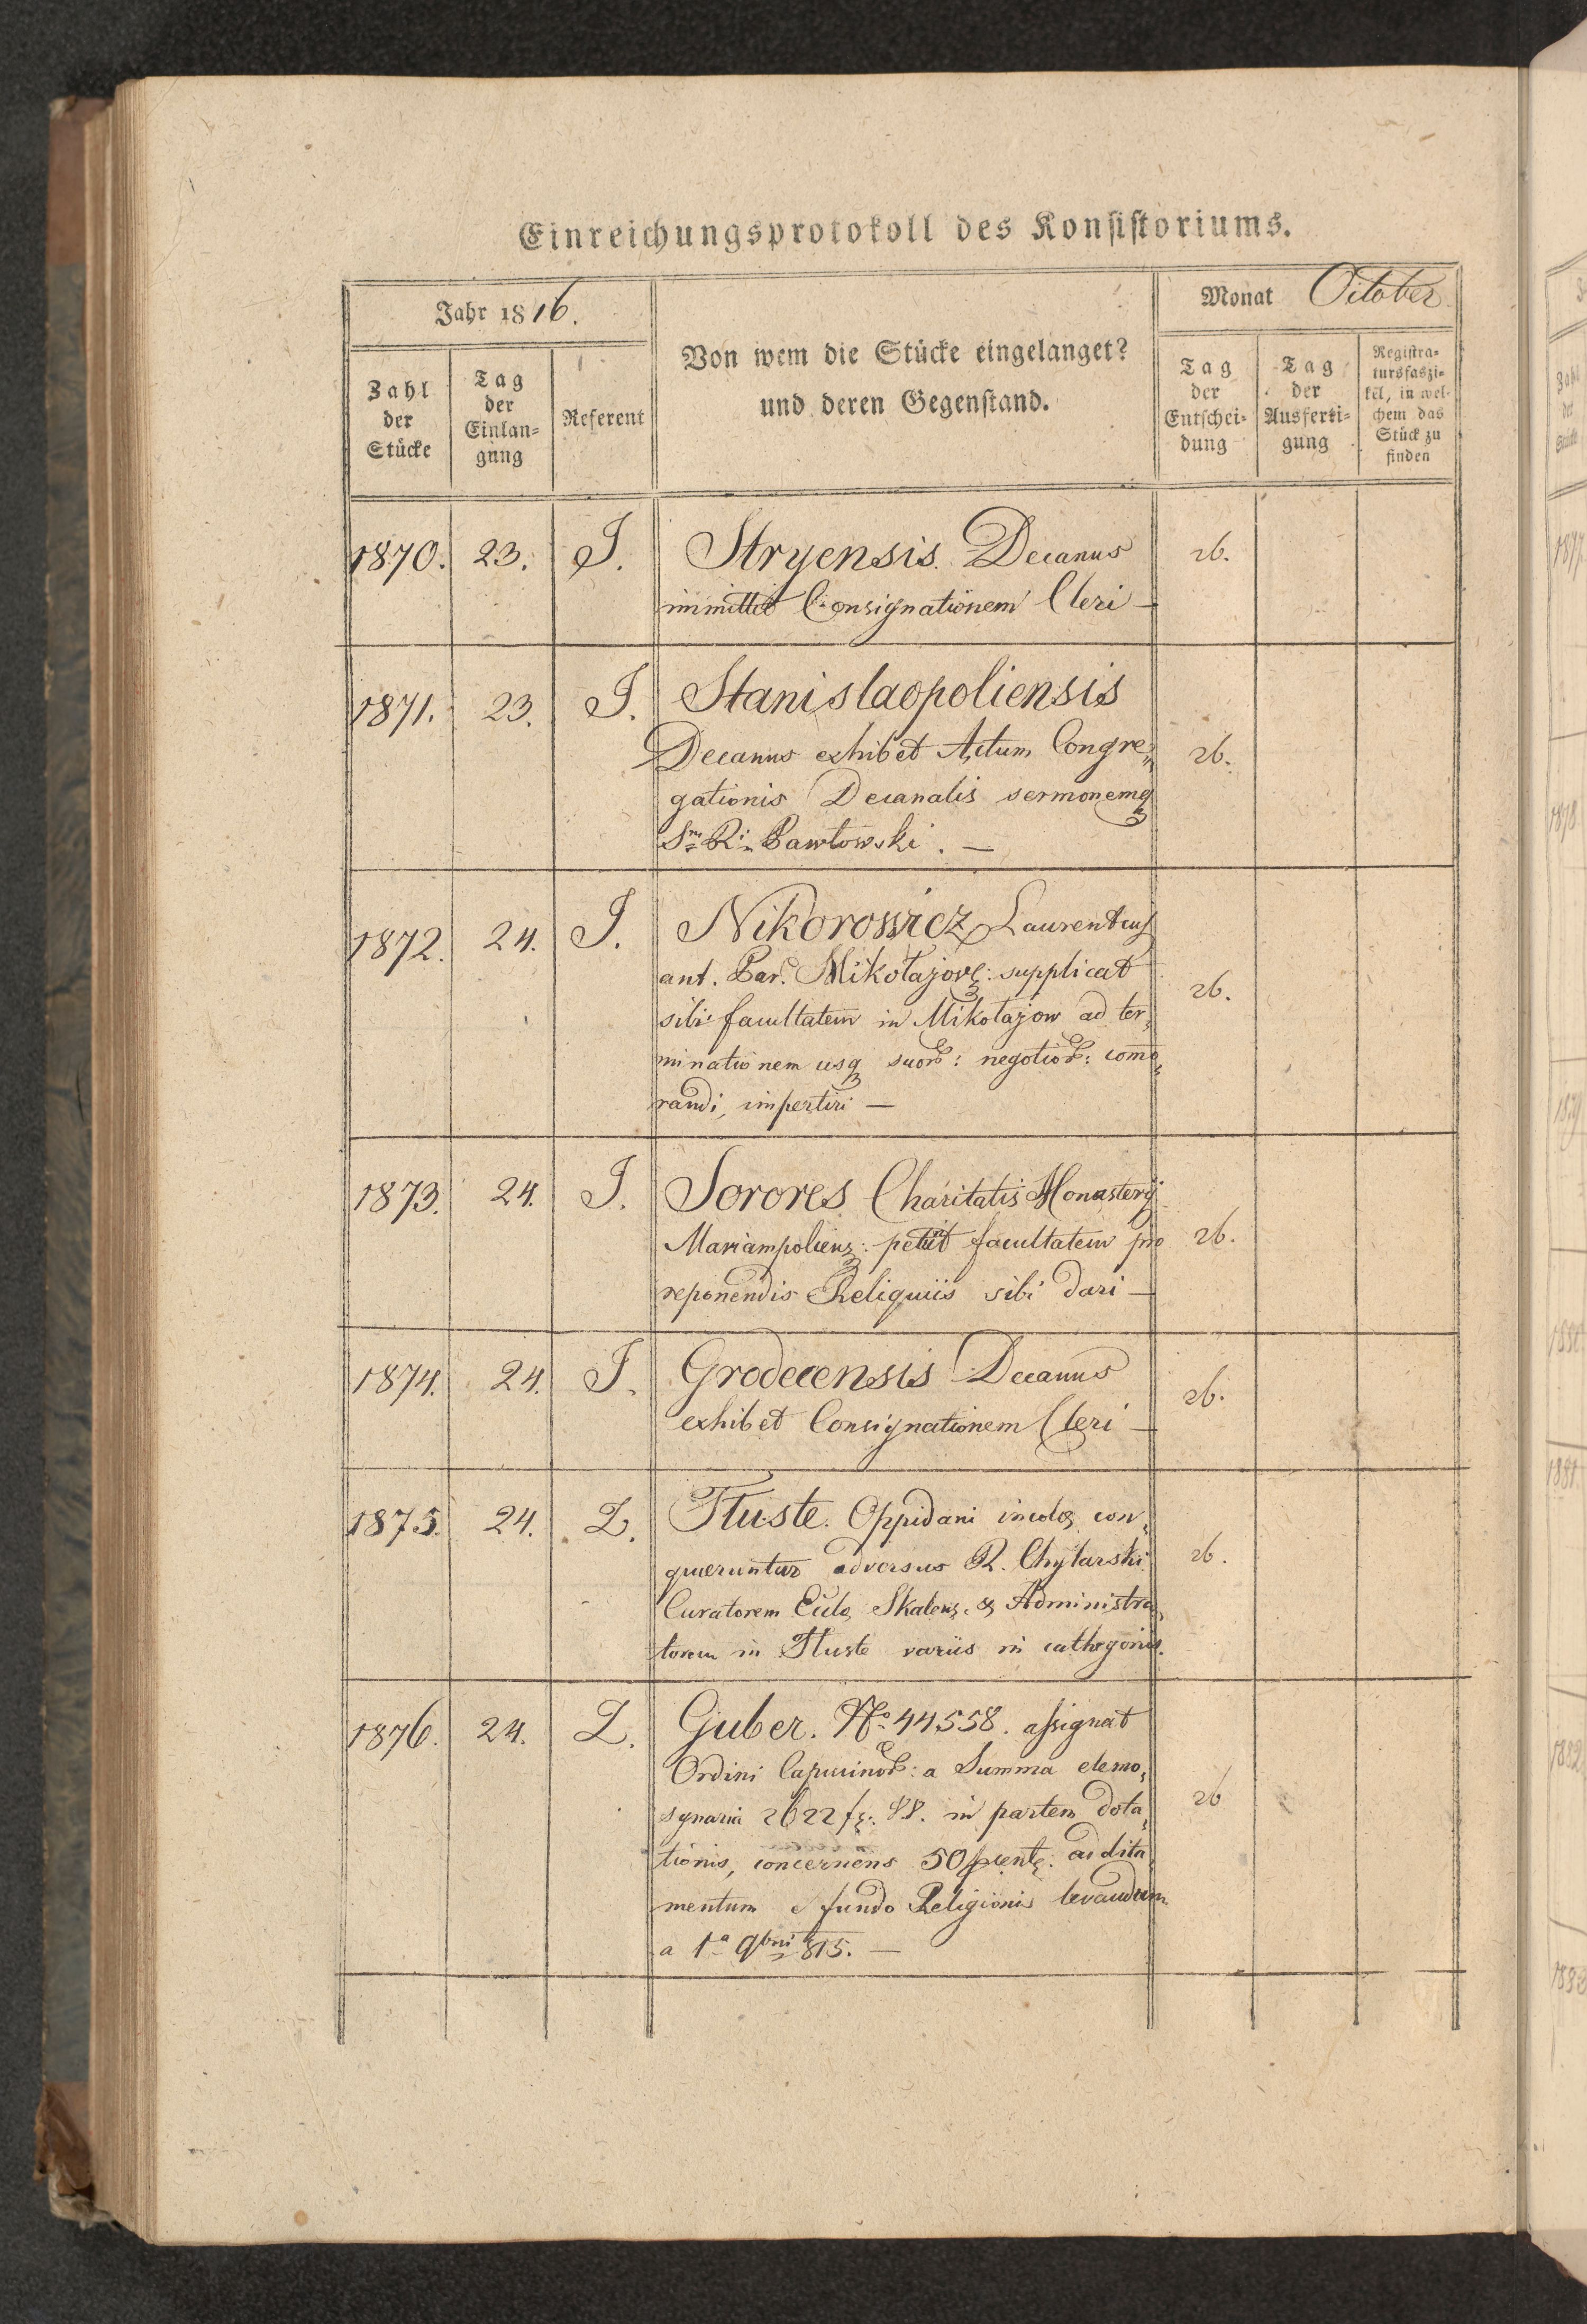 Einreichungsprotokoll des Konsistoriums.
Jahr 1816.
Von wem die Stücke eingelanget?
und deren Gegenstand.
Monat October
Zahl
der
Stücke
Tag
der
Einlan=
gung
Referent
Tag
der
Entschei=
dung
Tag
der
Ausferti=
gung
Registra=
tursfaszi=
kel, in wel=
chem das
Stück zu
finden
1870. 23. J. Stryensis Decanus 26.
immittit Consignationem Cleri —
1871. 23. J. Stanislaopoliensis
Decanus exhibet Actum Congre= 26.
gationis Decanalis sermonemq
Sm Ri Pawłowski. —
1872. 24. J. Nikorowicz Laurentius
ant. Par. Mikołajov: supplicat 26.
sibi facultatem in Mikołajow ad ter=
minationem usq suor: negotior: como=
randi, impertiri —
1873. 24. J. Sorores Charitatis Monasterij
Mariampoliens: petunt facultatem pro 26.
reponendis Reliquiis sibi dari —
1874. 24. J. Grodecensis Decanus 26.
exhibet Consignationem Cleri —
1875. 24. L. Tłuste. Oppidani incolæ con=
queruntur adversus R. Chylarski 26.
Curatorem Eccle Skalens. & Administra=
torem in Tłuste variis in cathegoriis.
1876. 24. L. Guber. No. 44558. assignat
Ordini Capucinor: a Summa elemo=
synaria 2622 fr: in partem dota= 26
tionis, concernens 50 percent: addita=
mentum e fundo Religionis levandum
a 1a 9bris 815. —